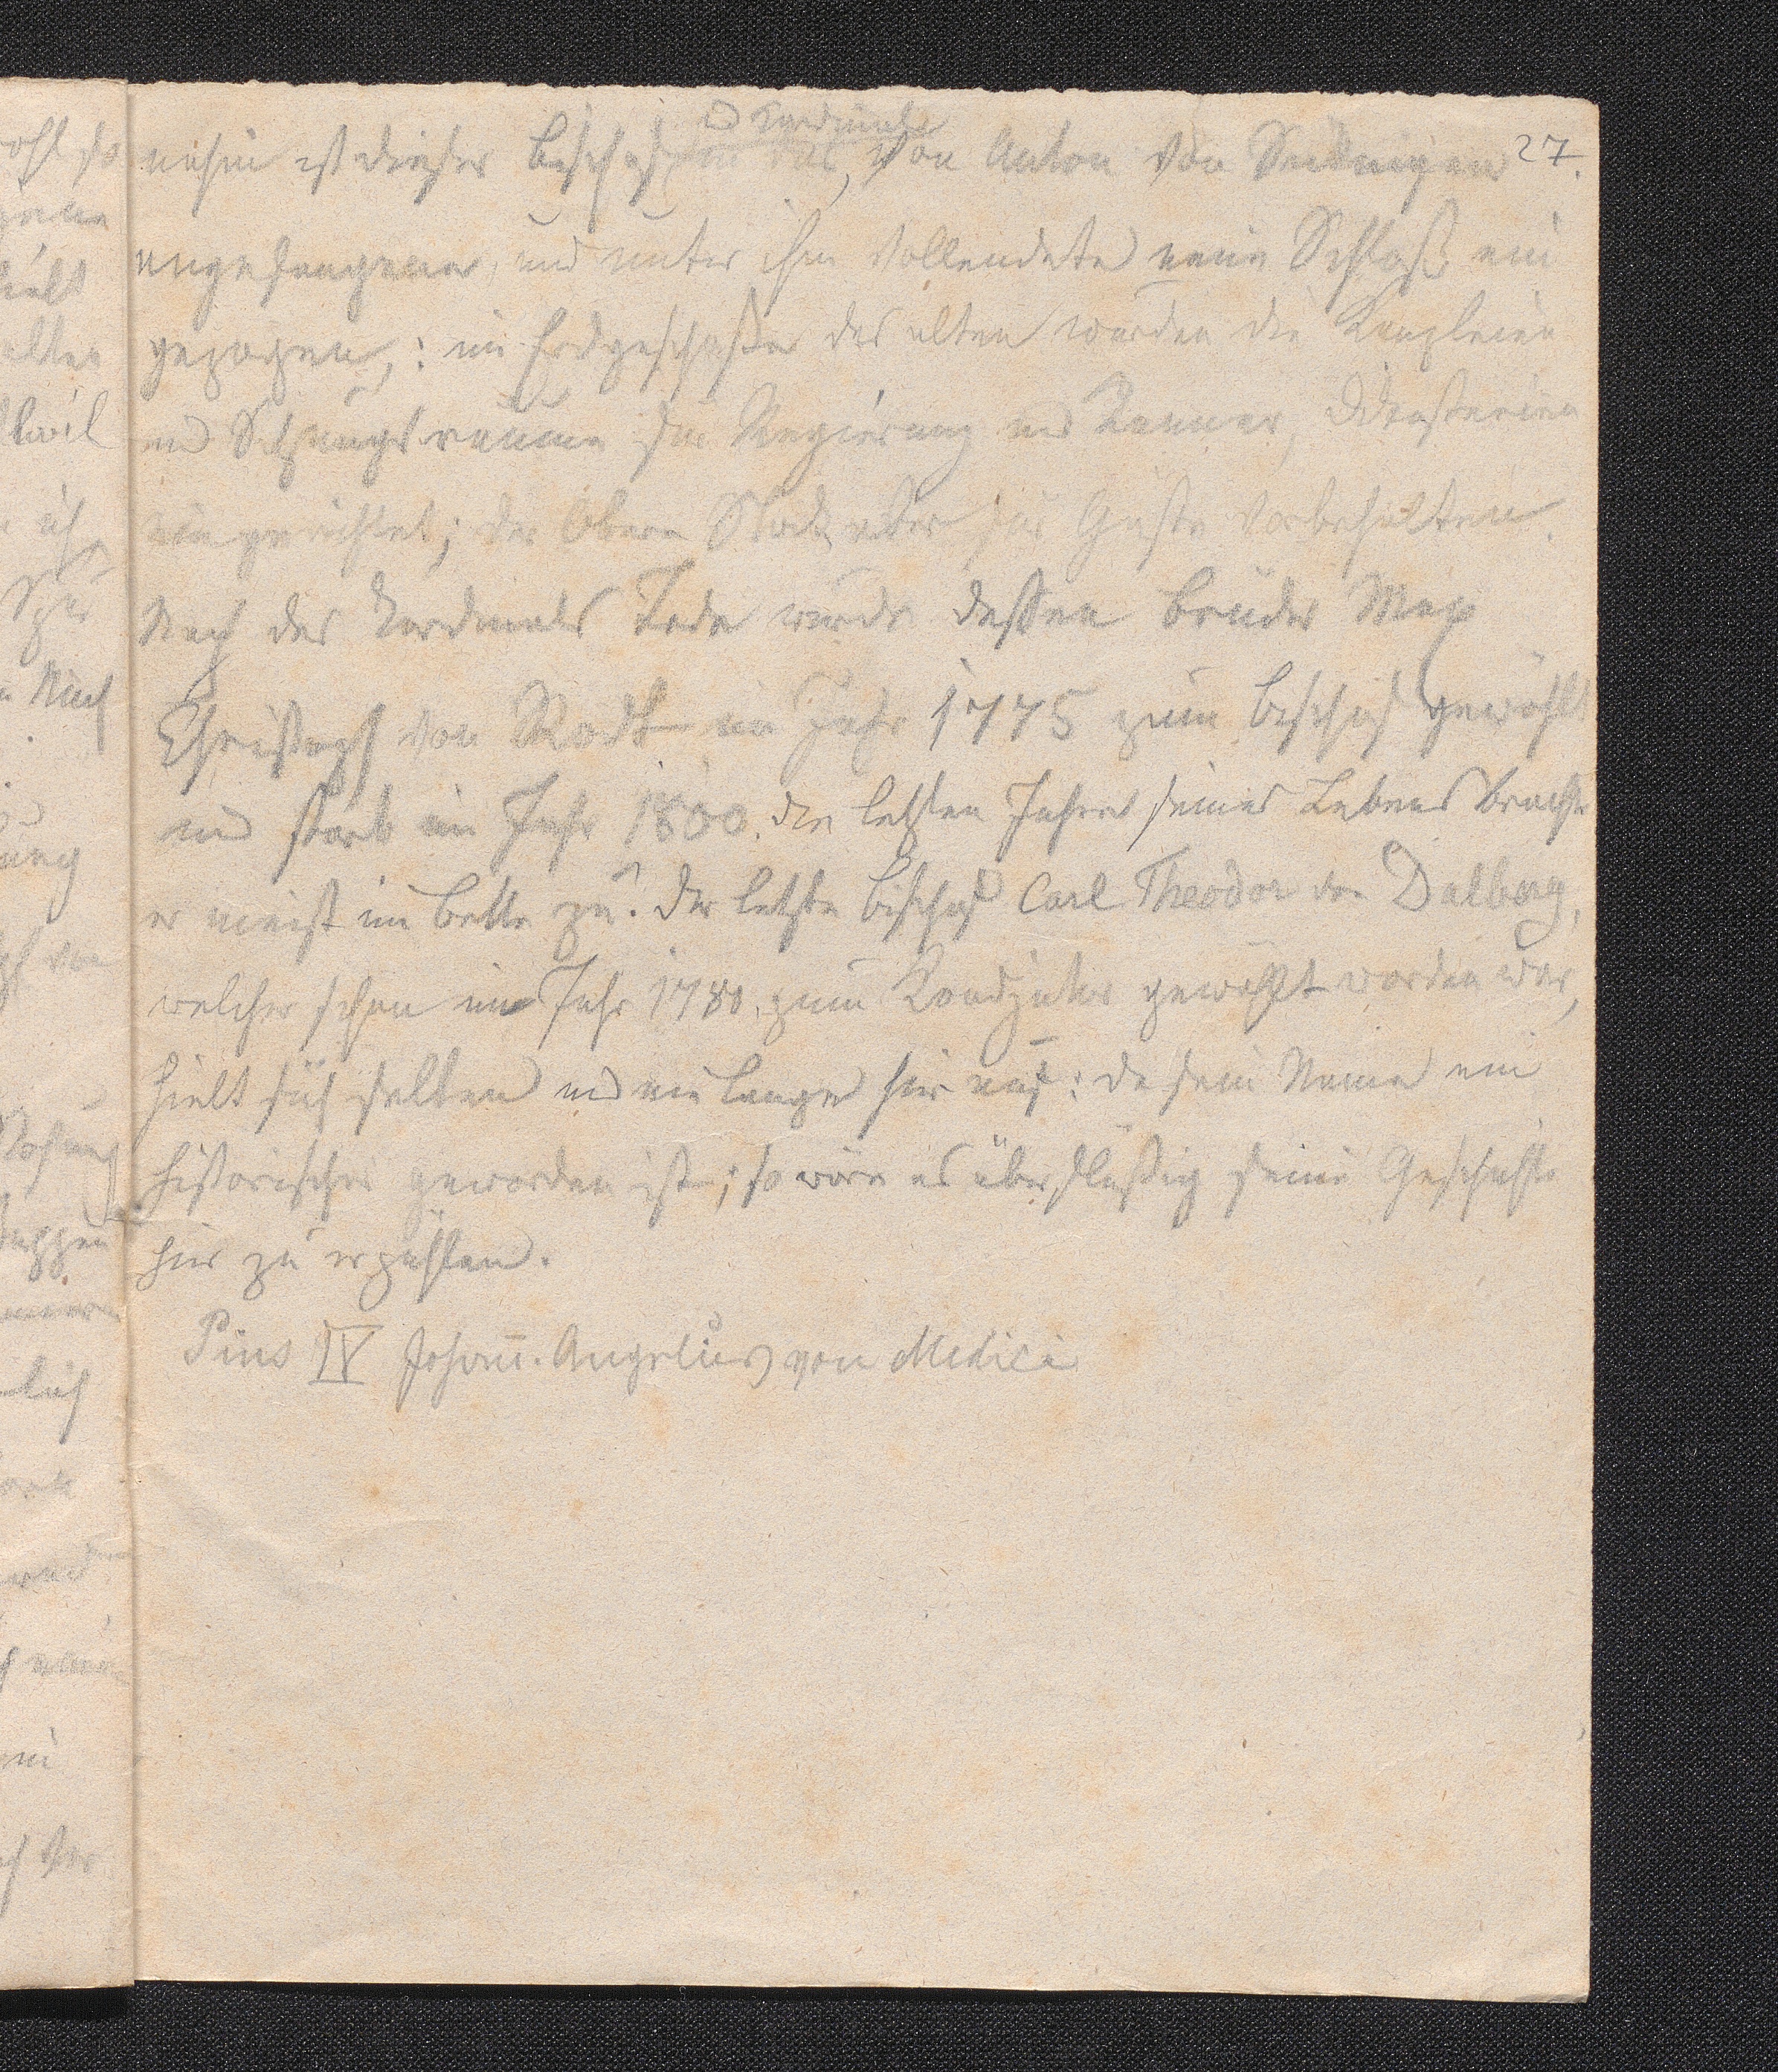 27.
u Kardinal
nesin ist dieser Bischof in das, von Anton von Sickingen
angefangene, und unter ihm vollendete neue Schloß ein
gezogen,: im Erdgeschosse des alten wurden die Kanzleien
und Sitzungsräume für Regierung und Kammer, Dikasterien
eingerichtet; der obere Stock aber für Gäste vorbehalten.
Nach des Kardinals Tode wurde dessen Bruder Max
Christoph von Rodt im Jahr 1775 zum Bischof gewählt
und starb im Jahr 1800. die letzten Jahre seines Lebens brachte
er meist im Bette zu. Der letzte Bischof Carl Theodor von Dalberg,
welcher schon im Jahr 1780. zum Koadjutor gewählt worden war,
hielt sich selten und nie lange hier auf: da sein Name ein
historischer geworden ist; so wäre es überflüßig seine Geschichte
hier zu erzählen.
Pius IV Johann. Angelus von Medici